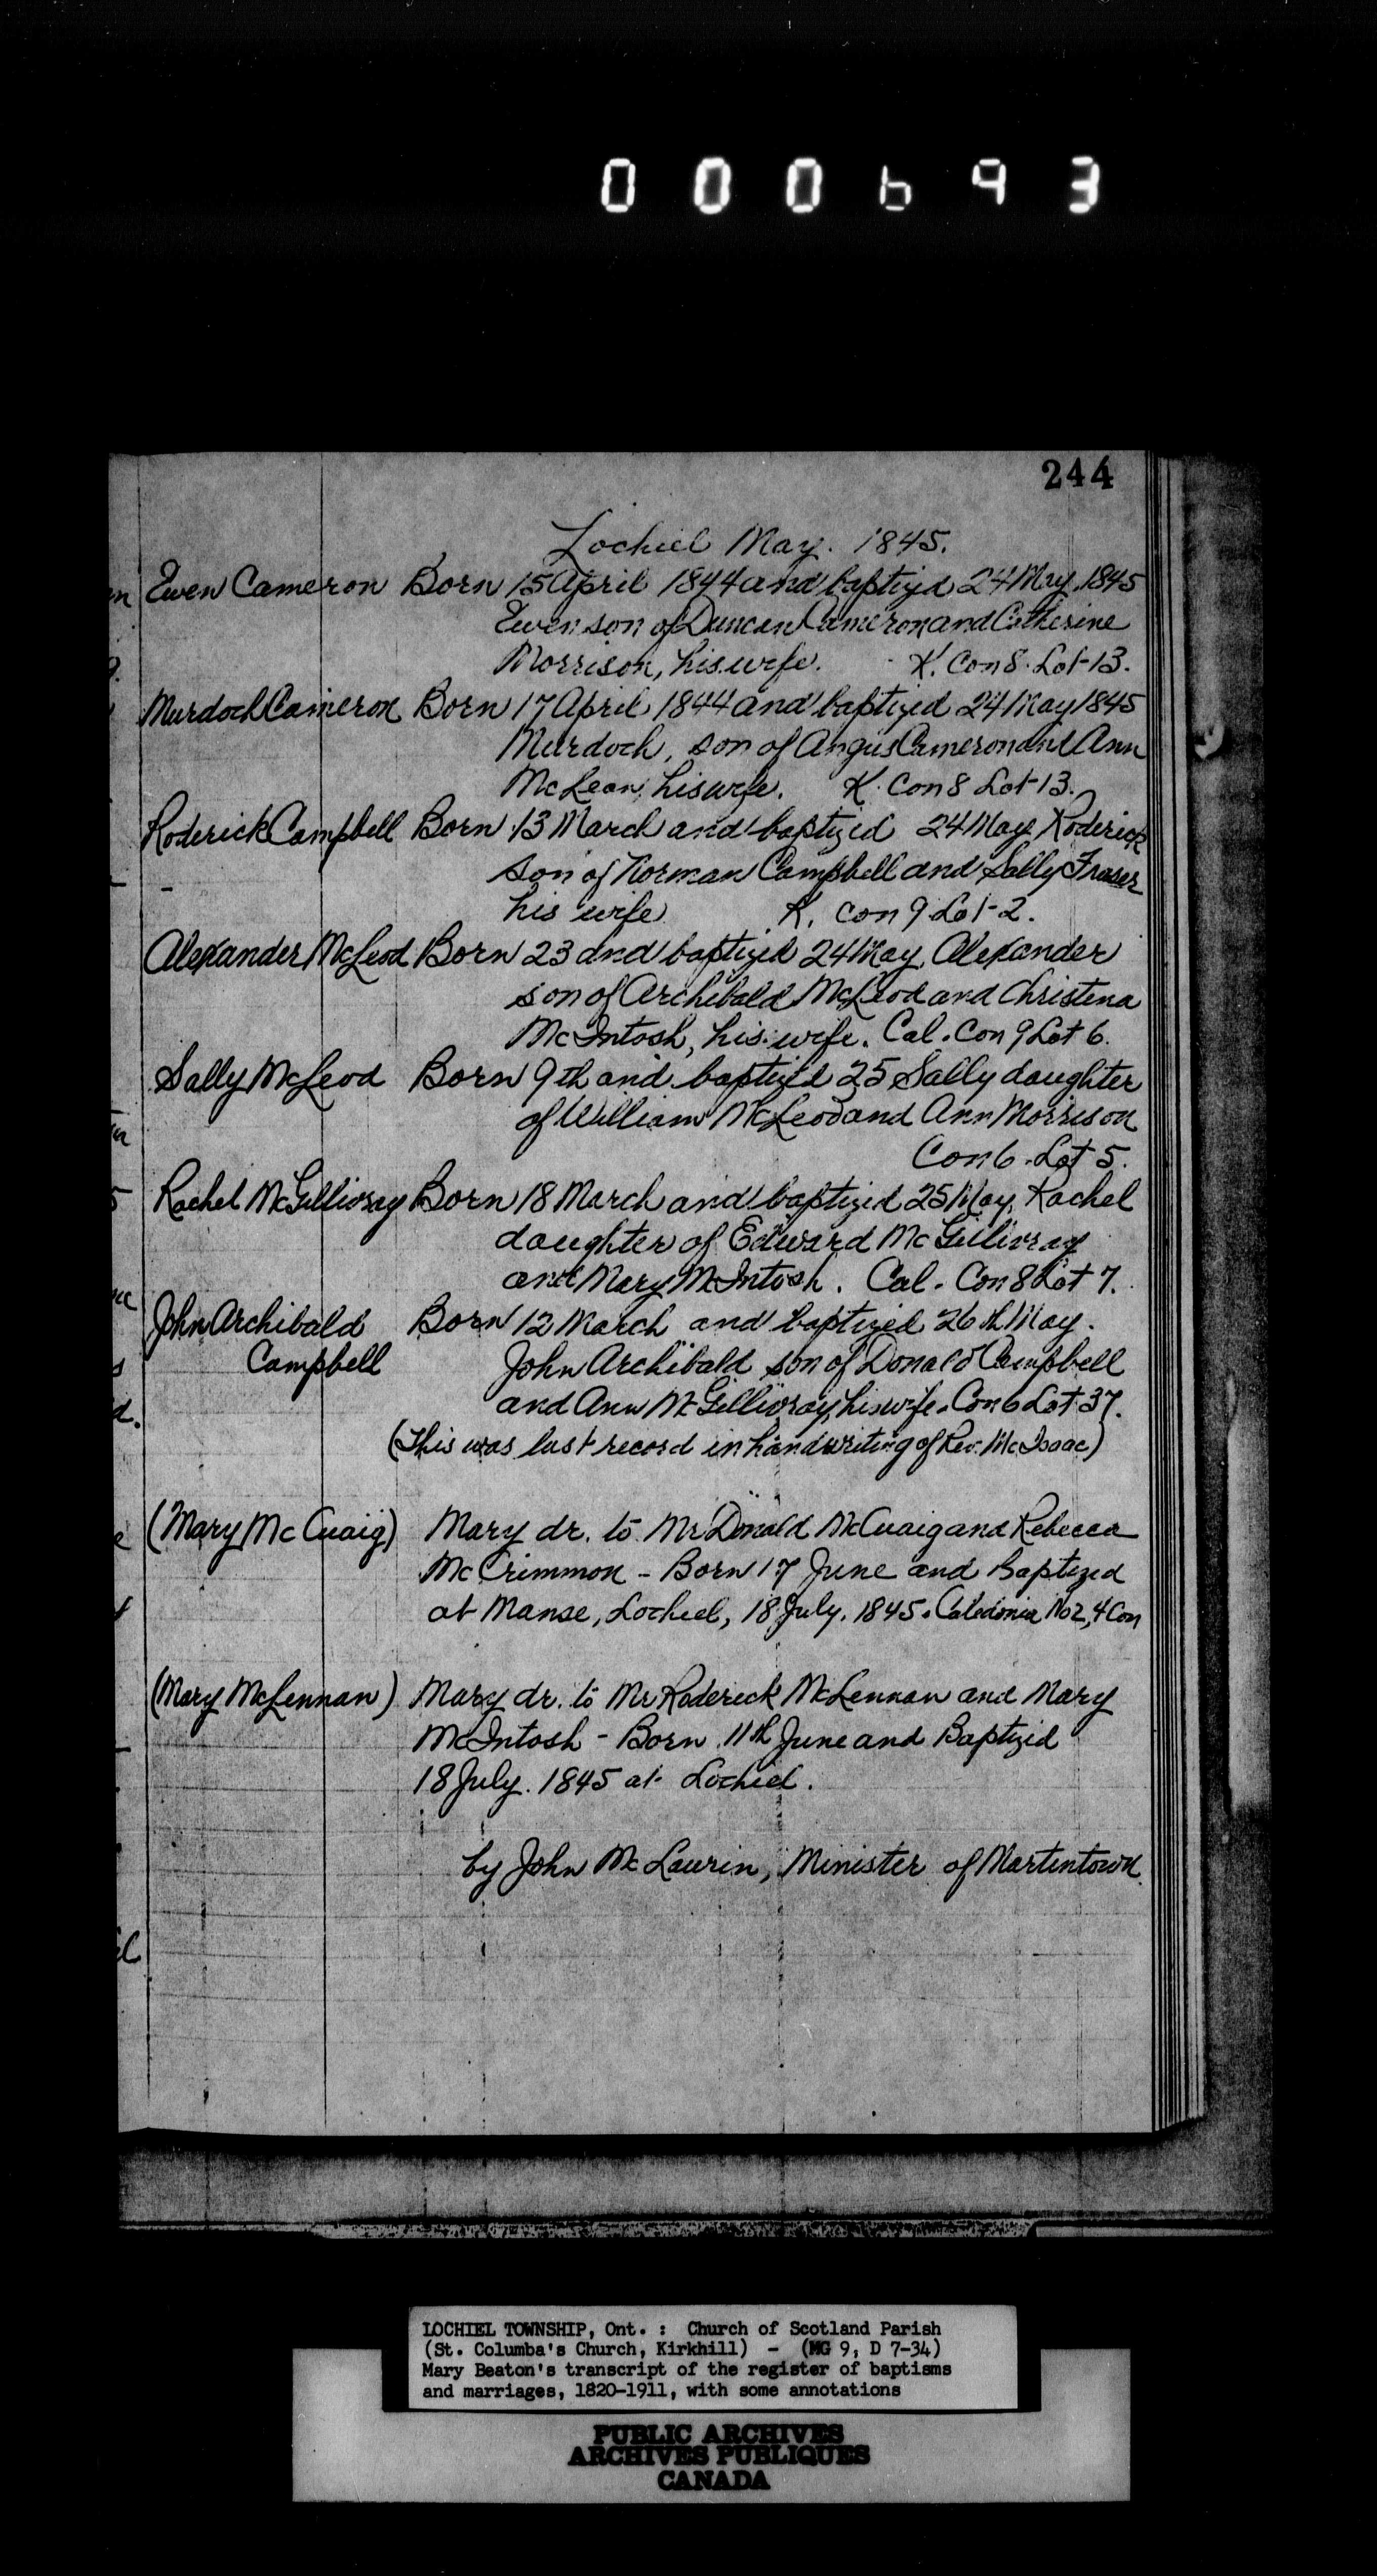 000693
244
Lochiel May. 1845.
Ewen Cameron Born 15 April 1844 and baptized 24 May. 1845
Ewen son of Duncan Cameron and Catherine
Morrison, his wife. K. Con 8. Lot 13.
Murdoch Cameron Born 17 April 1844 and baptized 24 May 1845
Murdoch, son of Angus Cameron and Ann
McLean, his wife. K. Con 8 Lot 13.
Roderick Campbell Born 13 March and baptized 24 May Roderick
son of Norman Campbell and Sally Fraser
his wife K. Con 9 Lot 2.
Alexander McLeod Born 23 and baptized 24 May, Alexander
son of Archibald McLeod and Christena
McIntosh, his wife. Cal. Con 9 Lot 6.
Sally McLeod Born 9th and baptized 25 Sally daughter
of William McLeod and Ann Morrison
Con 6. Lot 5.
Rachel McGillivray Born 18 March and baptized 25 May, Rachel
daughter of Edward McGillivray
and Mary McIntosh. Cal. Con 8 Lot 7.
John Archibald Born 12 March and baptized 26th May.
Campbell John Archibald son of Donald Campbell
and Ann McGillivray, his wife. Con 6 Lot 37.
(This was last record in handwriting of Rev. McIsaac)
(Mary McCuaig) Mary dr. to Mr Donald McCuaig and Rebecca
McCrimmon - Born 17 June and Baptized
at Manse, Lochiel, 18 July. 1845. Caledonia No 2, 4 Con
(Mary McLennan) Mary dr. to Mr Roderick McLennan and Mary
McIntosh - Born 11th June and Baptized
18 July. 1845 at Lochiel.
by John McLaurin, Minister of Martintown
LOCHIEL TOWNSHIP, Ont. : Church of Scotland Parish
(St. Columba's Church, Kirkhill) - (MG 9, D 7-34)
Mary Beaton's transcript of the register of baptisms
and marriages, 1820-1911, with some annotations
PUBLIC ARCHIVES
ARCHIVES PUBLIQUES
CANADA